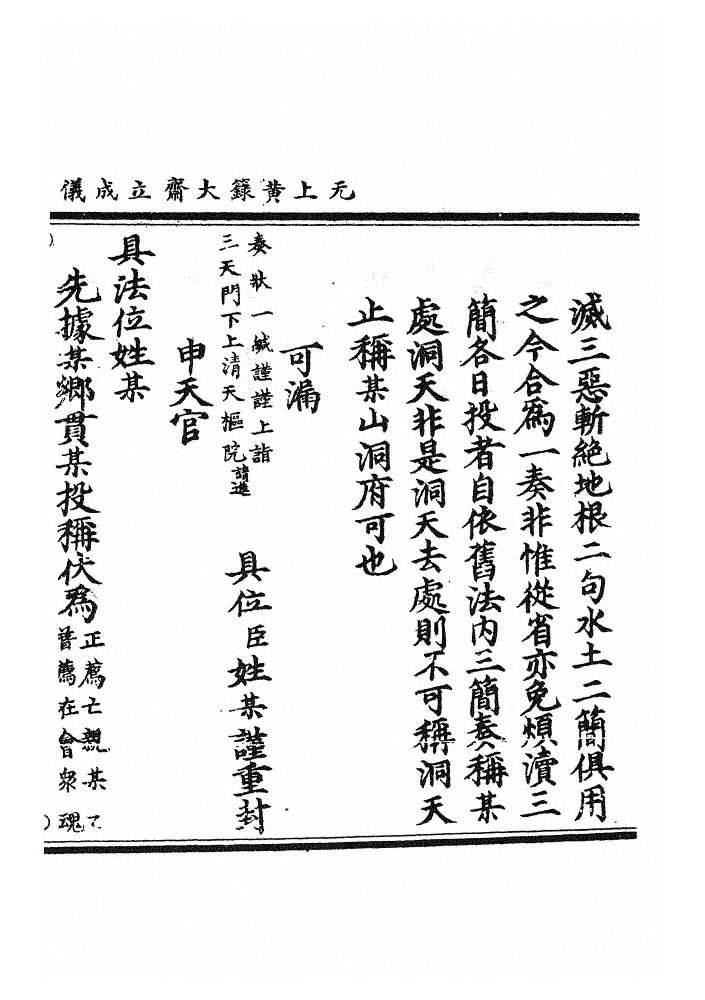 无上黄籙大齋立成儀
滅三惡斬絶地根二句水土二簡俱用
之今合爲一奏非惟從省亦免煩瀆三
簡各日投者自依舊法内三簡奏稱某
處洞天非是洞天去處則不可稱洞天
止稱某山洞府可也
可漏
奏狀一緘謹謹上詣
三天門下上清天樞院請進
具位臣姓某謹重封
申天官
具法位姓某
先據某鄉貫某投稱伏爲正薦亡親某
普薦在會衆魂